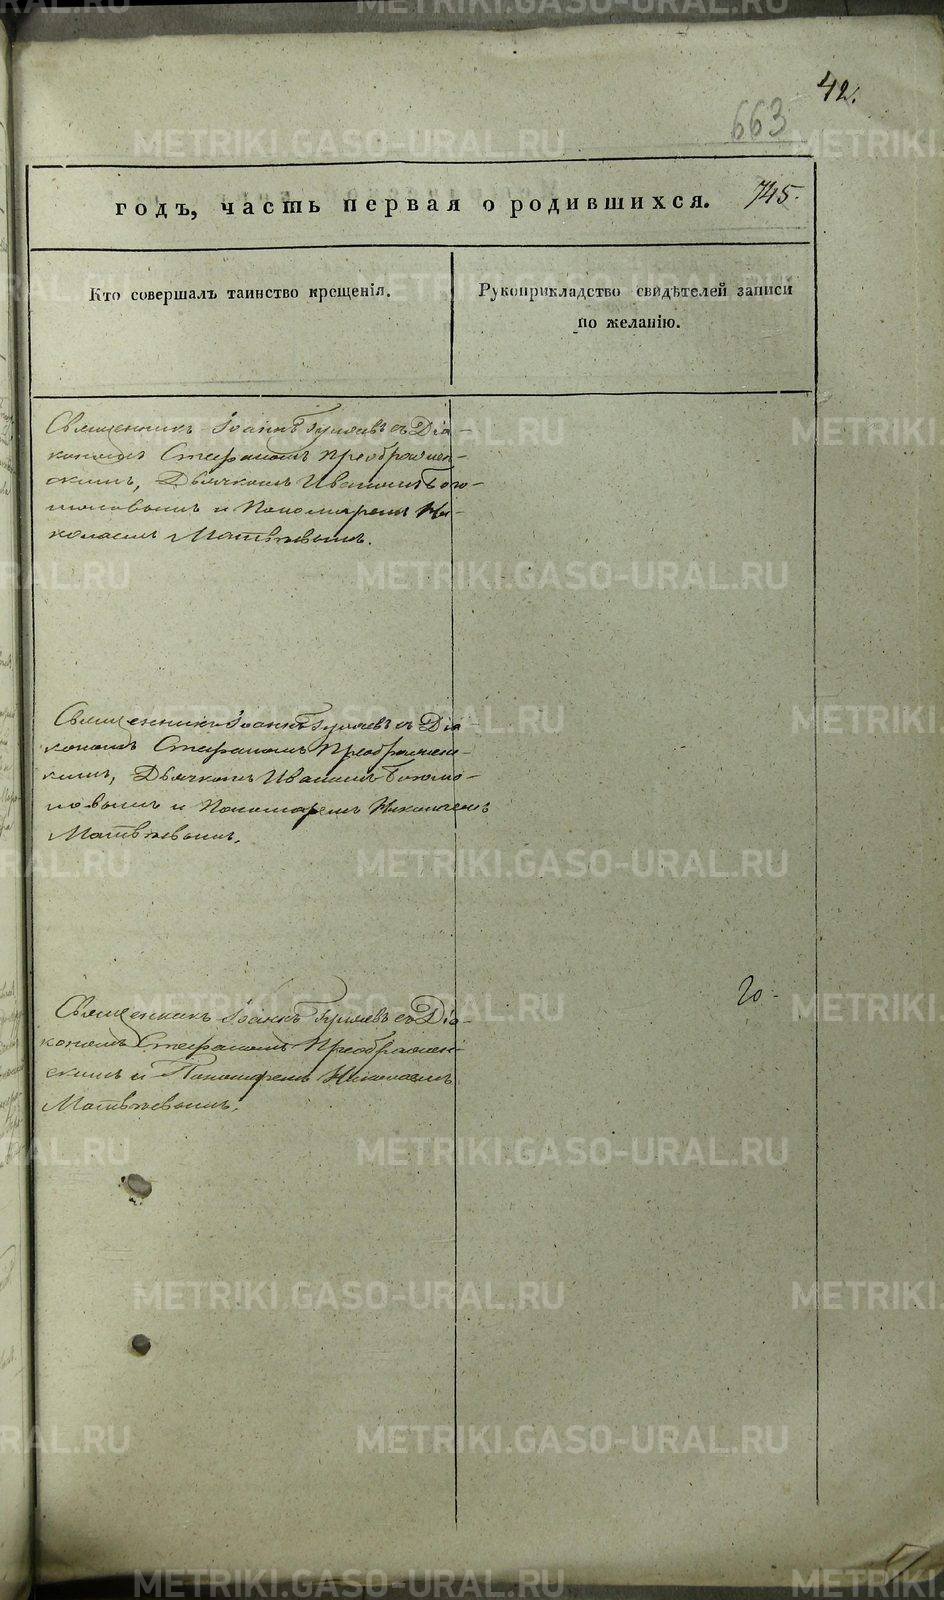 42.
663
годъ, часть первая о родившихся. 745.
Кто совершалъ таинство крещенія.
Рукоприкладство свидѣтелей записи
по желанію.
Священникъ Іоаннъ Гуляевъ съ Діа-
кономъ Стефаномъ Преображен-
скимъ, Дьячкомъ Иваномъ Бого-
моловымъ и Пономаремъ Ни-
колаемъ Матвѣевымъ.
Священникъ Іоаннъ Гуляевъ съ Діа-
кономъ Стефаномъ Преображен-
скимъ, Дьячкомъ Иваномъ Богомо-
ловымъ и Пономаремъ Николаемъ
Матвѣевымъ.
20-
Священникъ Іоаннъ Гуляевъ съ Діа-
кономъ Стефаномъ Преображен-
скимъ и Пономаремъ Николаемъ
Матвѣевымъ.
METRIKI.GASO-URAL.RU